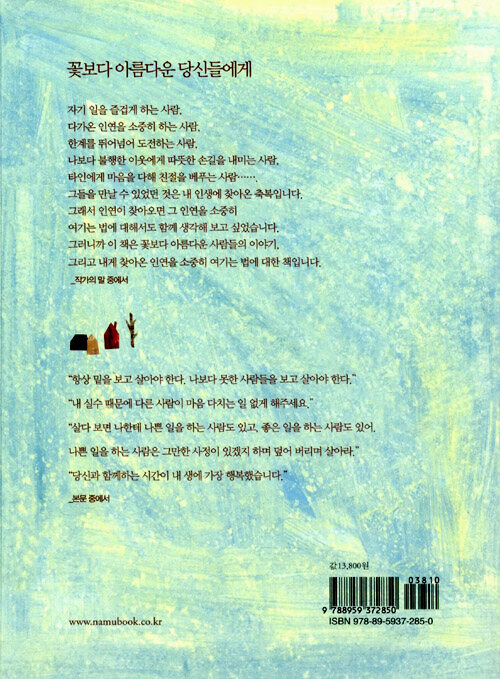 꽃보다 아름다운 당신들에게
자기 일을 즐겁게 하는 사람,
다가온 인연을 소중히 하는 사람,
한계를 뛰어넘어 도전하는 사람,
나보다 불행한 이웃에게 따뜻한 손길을 내미는 사람,
타인에게 마음을 다해 친절을 베푸는 사람……,
그들을 만날 수 있었던 것은 내 인생에 찾아온 축복입니다.
그래서 인연이 찾아오면 그 인연을 소중히
여기는 법에 대해서도 함께 생각해 보고 싶었습니다.
그러니까 이 책은 꽃보다 아름다운 사람들의 이야기,
그리고 내게 찾아온 인연을 소중히 여기는 법에 대한 책입니다.
_작가의 말 중에서
“항상 밑을 보고 살아야 한다. 나보다 못한 사람들을 보고 살아야 한다.”
“내 실수 때문에 다른 사람이 마음 다치는 일 없게 해주세요.”
“살다 보면 나한테 나쁜 일을 하는 사람도 있고, 좋은 일을 하는 사람도 있어.
나쁜 일을 하는 사람은 그만한 사정이 있겠지 하며 덮어 버리며 살아라.”
“당신과 함께하는 시간이 내 생에 가장 행복했습니다.”
_본문 중에서
값 13,800원
03810
9 788959 372850
www.namubook.co.kr
ISBN 978-89-5937-285-0